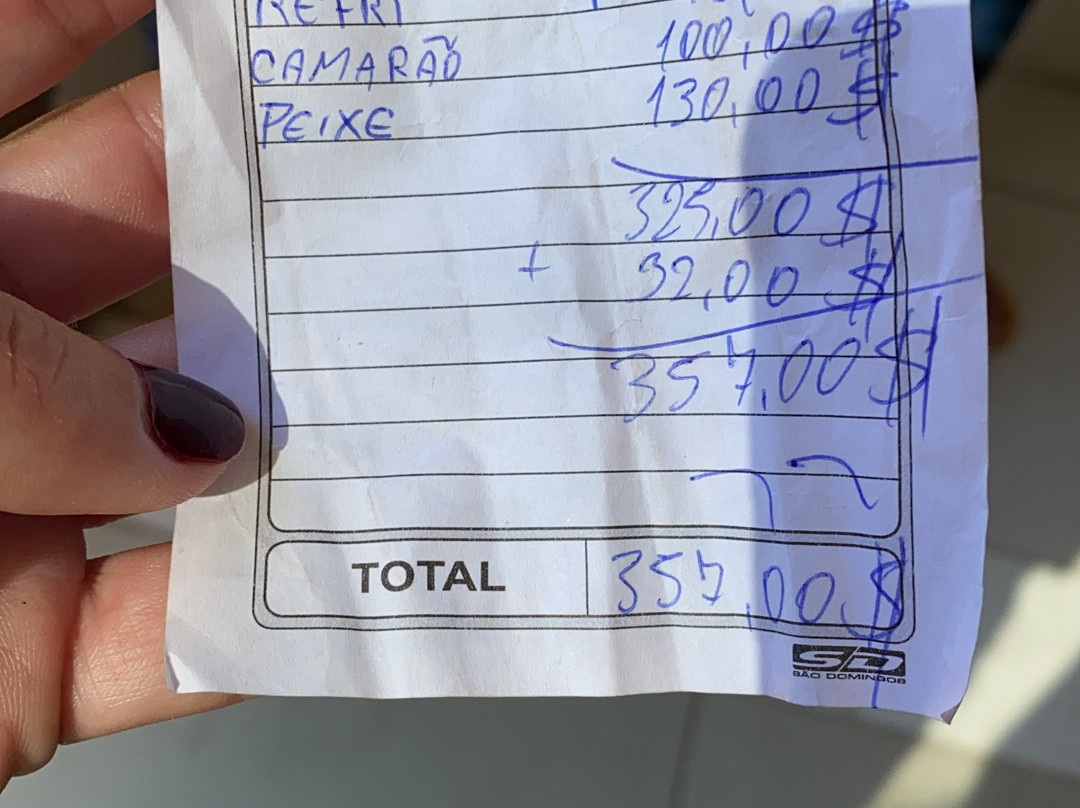 REFRI
CAMARÃO 100,00 $
PEIXE 130,00 $
325,00 $
+ 32,00 $
357,00 $
TOTAL 357,00 $
SD
SÃO DOMINGOS